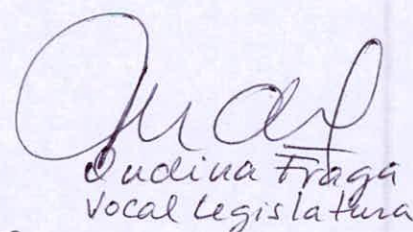 Ondina Fraga
Vocal Legislatura